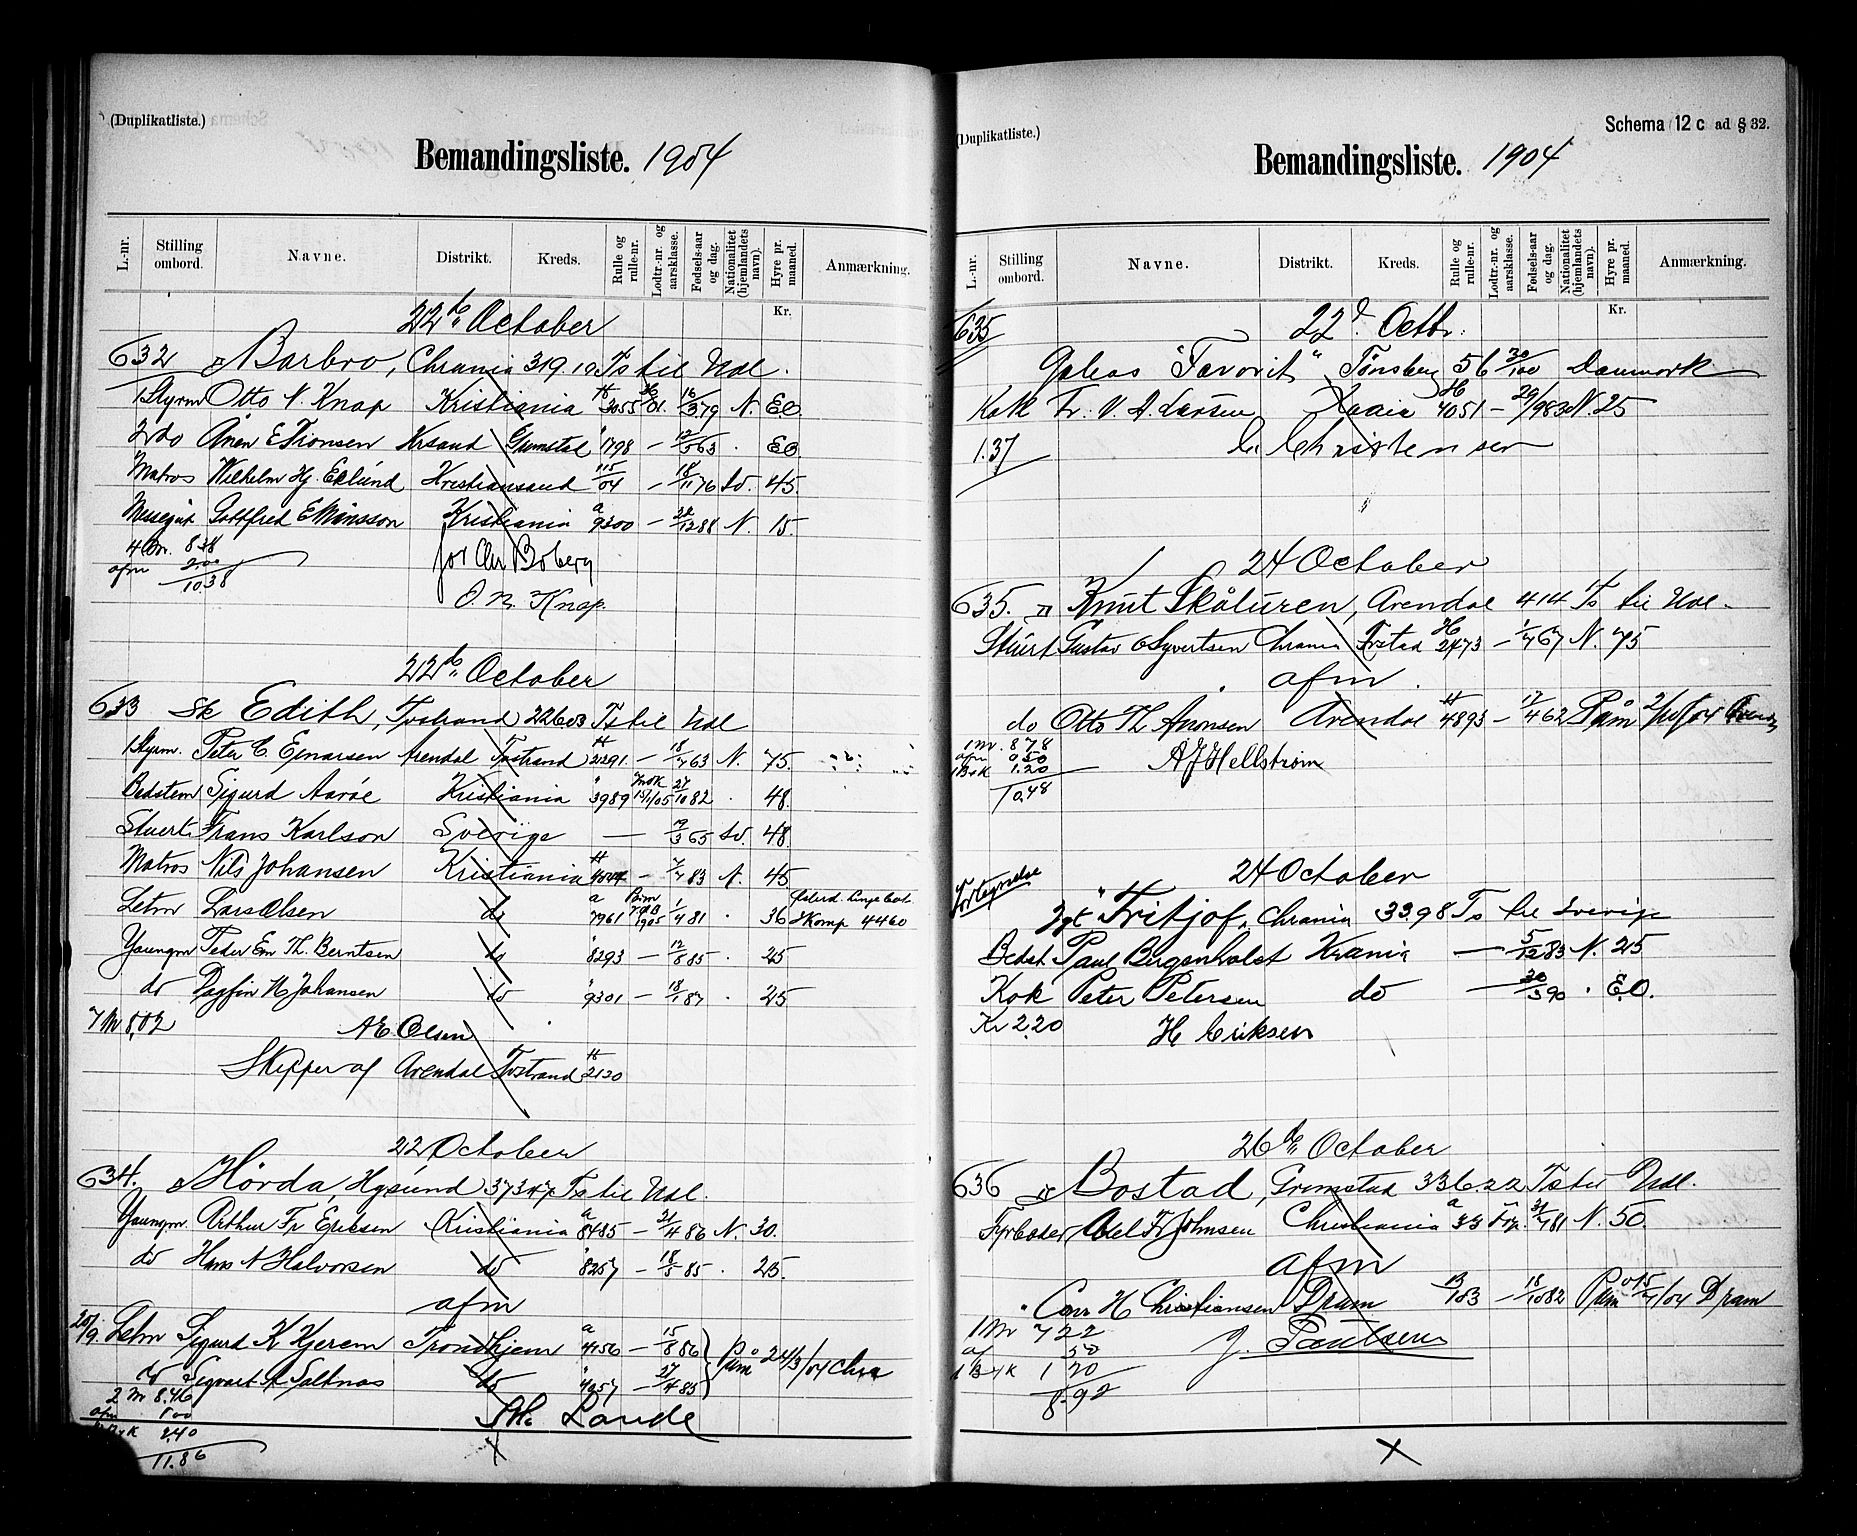 (Duplikatliste.)
Bemandingsliste. 1904
L.-nr. Stilling ombord. Navne. Distrikt. Kreds. Rulle og rulle-nr. Lodtr.-nr. og aarsklasse. Fødsels-aar og dag. Nationalitet (hjemlandets navn). Hyre pr. maaned. Anmærkning.
Kr.
22de October
632 Barbro, Chrania 319.10 Ts til Udl.
1 Styrm Otto N. Knap Kristiania H 3055 01. 16/3 79 N. EO
2 do E Tionsen Krsand Grimstad " 1798 — 12/5 63 . EO
Matros Wilhelm Hj. Eklund Kristiansand 115/04 — 18/11 76 Sv. 45.
Messegut Gottfred E Monsson Kristiania a 9300 — 22/12 88 N. 15.
4 m. 8.38
afm 2.00
10.38
for Chr Boberg
O. N. Knap.
22de October
633 Sk Edith, Tvstrand 226.03 Ts til Udl
1 Styrm. Peter C. Ejnarsen Arendal Tvstrand H 2291 — 18/7 63 N. 75.
Bedstem Sigurd Aarøe Kristiania " 3989 27/10 82 . 48.
Stuert. Frans Karlson Sverige — 19/3 65 Sv. 48.
Matros Nils Johansen Kristiania H — 7/7 83 N. 45
Letm Lars Olsen do a 7961 1905 1/4 81 . 36 Komp 4460
Youngm Peder Em Th. Berntsen do " 8293 — 12/8 85 . 25
do Dagfin N Johansen do " 9301 — 18/1 87 . 25
7 M 8.02
A E. Olsen
Skipper af Arendal Tvstrand H 2120
22 October
634. Hörda, Hgsund 373.47 Ts til Udl.
Youngm. Arthur Fr Eriksen Kristiania a 8485 — 21/4 86 N. 30.
do Hans A Halvorsen do " 8257 — 18/5 85 . 25.
afm
20/9. Letm Sigurd K Kjerem Trondhjem a 4156 — 15/8 86 Paam 24/3/04 Chra
do Sigvart A Saltnas do " 4057 — 27/4 85
2 M 8.46
afm 1.00
2.40
11.86
Lande
(Duplikatliste.)
Schema 12 c ad § 32.
Bemandingsliste. 1904
L.-nr. Stilling ombord. Navne. Distrikt. Kreds. Rulle og rulle-nr. Lodtr.-nr. og aarsklasse. Fødsels-aar og dag. Nationalitet (hjemlandets navn). Hyre pr. maaned. Anmærkning.
Kr.
635
22d. Octbr.
Galeas "Favorit" Tönsberg 56 30/100 Danmark
Kok Fr. V. A. Larsen Kaaia H 4051 — 29/9 83 N. 25
1.37
C. Christensen
24 October
635. Knut Skåluren, Arendal 414 Ts til Udl.
Stuert Gustav O Syvertsen Chrania Frstad H 2473 — 1/7 67 N. 75
afm.
do Otto Th. Aronsen Arendal H 4893 — 17/4 62 Påm 2/10/04
1 M. 8.78
afm 0.50
1 B+K 1.20
10.48
A J Hellström
24 October
Fortegnelse
Jgt "Fritjof" Chrania 33.98 Ts til Sverige
Bedst. Paul Bergenholst Krania — 5/12 83 N. 25
Kok Peter Petersen do — 30/3 90 . E.O.
Kr 2.20
H Eriksen
26de October
636 Bostad, Grimstad 336.22 Ts til Udl.
Fyrböder Axel Fr Johnsen Christiania a 33 31/7 81 N. 50
afm
" Carr H Christiansen Dram 13/103 — 18/10 82 Paam 15/7/04 Dram
1 M 7 22
af 50
1 B+K 1 20
8.92
J. Poulsen